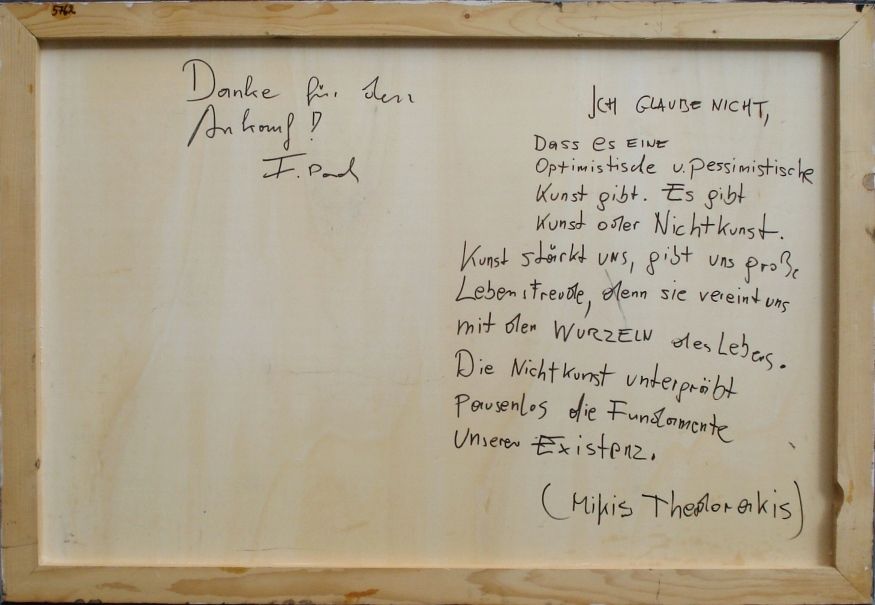 5762
Danke für den
Ankauf!
ICH GLAUBE NICHT,
Dass es EINE
Optimistische u. pessimistische
Kunst gibt. Es gibt
Kunst oder Nichtkunst.
Kunst stärkt uns, gibt uns große
Lebensfreude, denn sie vereint uns
mit den WURZELN des Lebens.
Die Nichtkunst untergräbt
pausenlos die Fundamente
Unserer Existenz.
(Mikis Theodorakis)